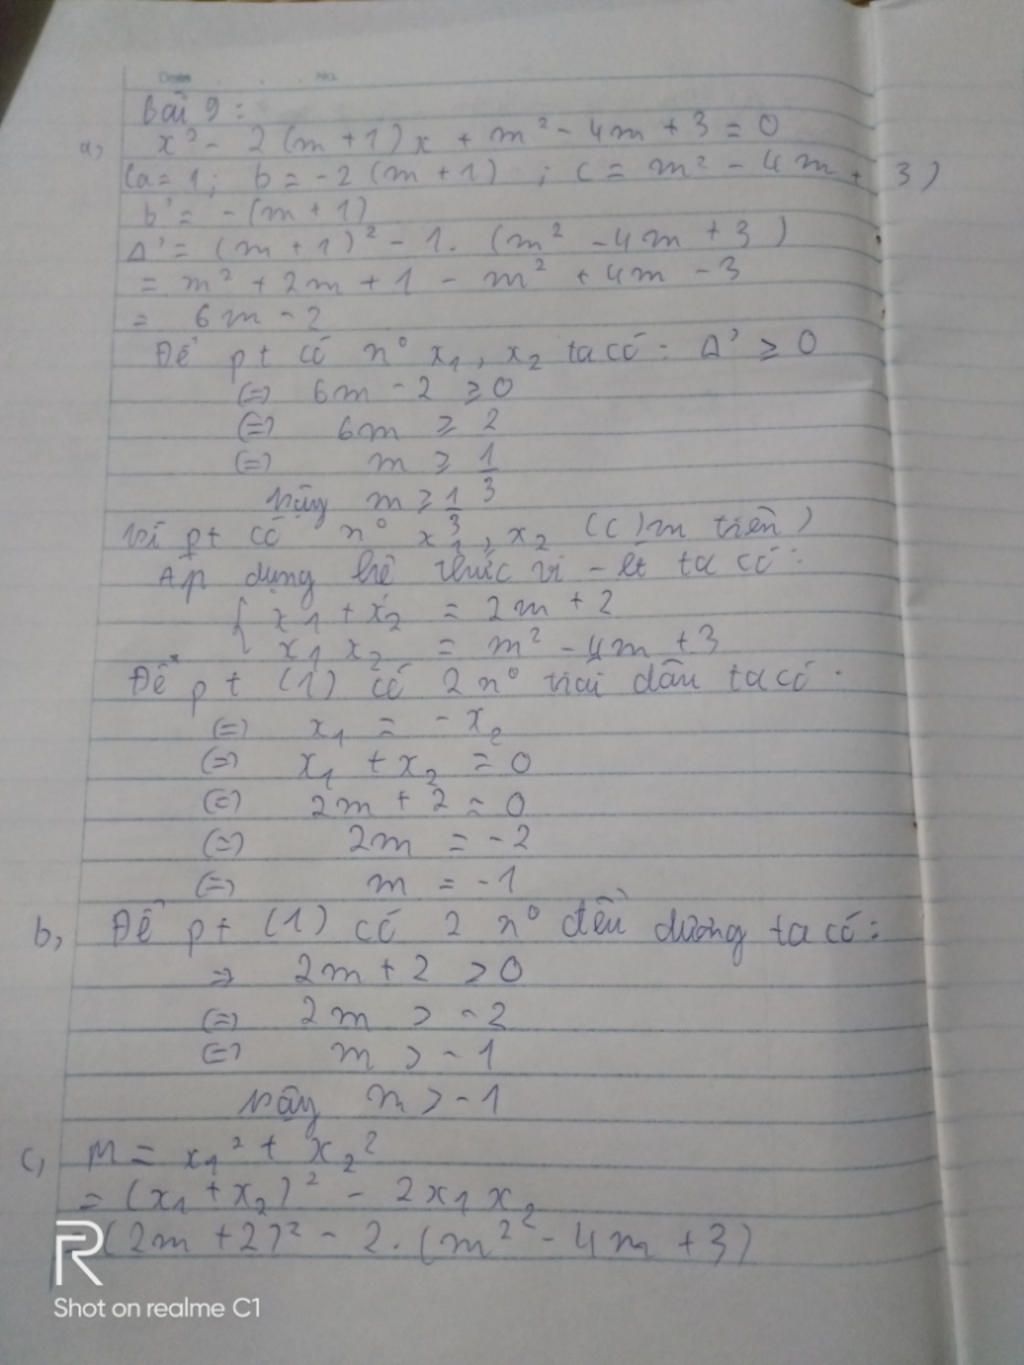 Date No.
Bài 9:
a, x² - 2(m+1)x + m² - 4m + 3 = 0
(a = 1; b = -2(m+1) ; c = m² - 4m + 3)
b' = -(m+1)
Δ' = (m+1)² - 1. (m² - 4m + 3)
= m² + 2m + 1 - m² + 4m - 3
= 6m - 2
Để pt có n° x₁, x₂ ta có: Δ' ≥ 0
(=) 6m - 2 ≥ 0
(=) 6m ≥ 2
(=) m ≥ 1/3
Vậy m ≥ 1/3
Vì pt có n° x₁, x₂ (c)m trên)
Áp dụng hệ thức Vi-ét ta có:
{ x₁ + x₂ = 2m + 2
x₁ x₂ = m² - 4m + 3
Để pt (1) có 2 n° trái dấu ta có:
(=) x₁ = -x₂
(=) x₁ + x₂ = 0
(=) 2m + 2 = 0
(=) 2m = -2
(=) m = -1
b, Để pt (1) có 2 n° đều dương ta có:
=> 2m + 2 > 0
(=) 2m > -2
(=) m > -1
Vậy m > -1
c, M = x₁² + x₂²
= (x₁ + x₂)² - 2x₁x₂
= (2m + 2)² - 2. (m² - 4m + 3)
R
Shot on realme C1